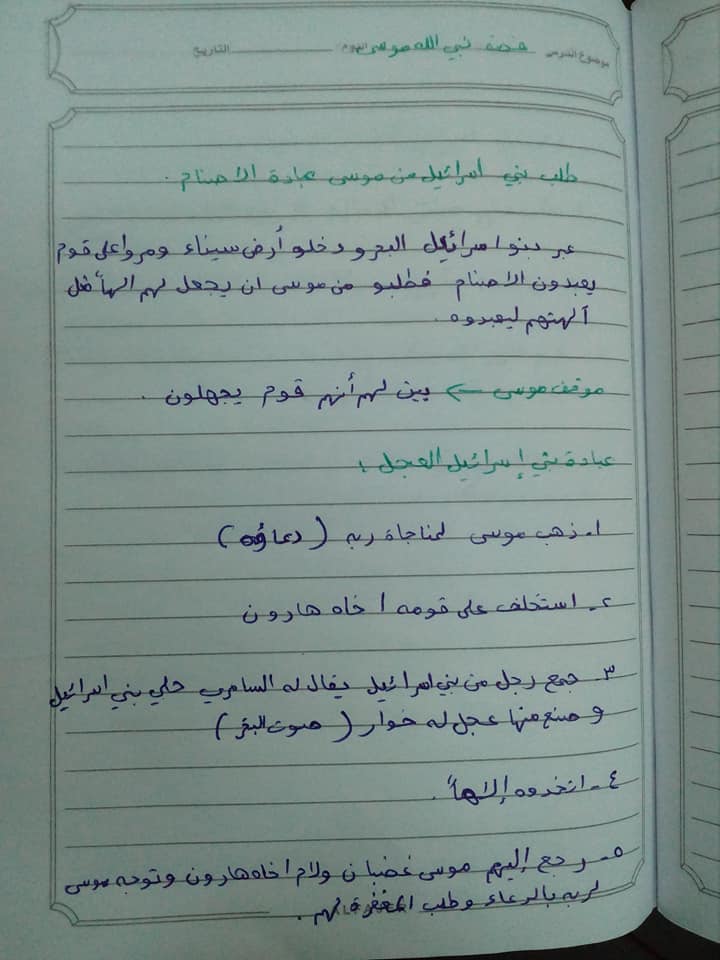 موضوع الدرس قصة نبي الله موسى اليوم التاريخ
طلب بني اسرائيل من موسى عبادة الاصنام .
عبر بنوا اسرائيل البحر ودخلو أرض سيناء ومروا على قوم
يعبدون الاصنام فطلبو من موسى ان يجعل لهم الهاً مثل
آلهتهم ليعبدوه .
موقف موسى ← بين لهم أنهم قوم يجهلون .
عبادة بني إسرائيل العجل :
١- ذهب موسى لمناجاة ربه ( دعاؤه )
٢- استخلف على قومه اخاه هارون
٣- جمع رجل من بني اسرائيل يقال له السامري حلي بني اسرائيل
وصنع منها عجل له خوار ( صوت البقر )
٤- اتخدوه إلاهاً .
٥- رجع إليهم موسى غضبان ولام اخاه هارون وتوجه موسى
لربه بالدعاء وطلب المغفرة لهم .